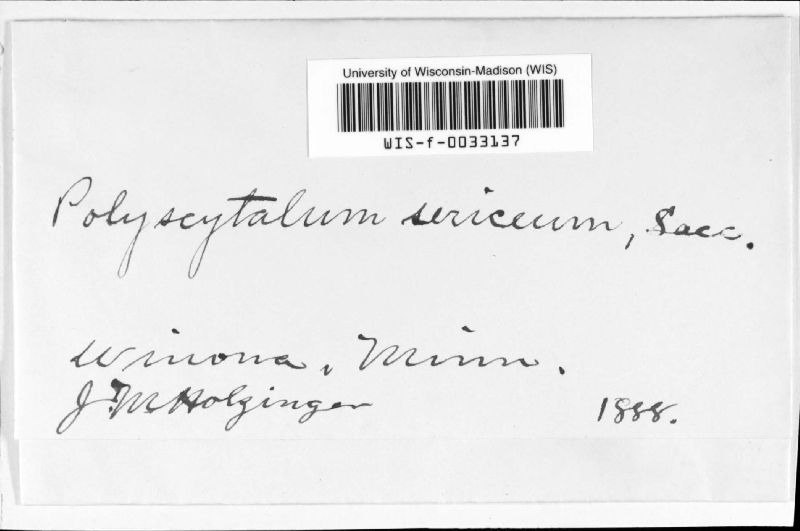 University of Wisconsin-Madison (WIS)
WIS-f-0033137
Polyscytalum sericeum, Sacc.
Winona, Minn.
J. M. Holzinger 1888.